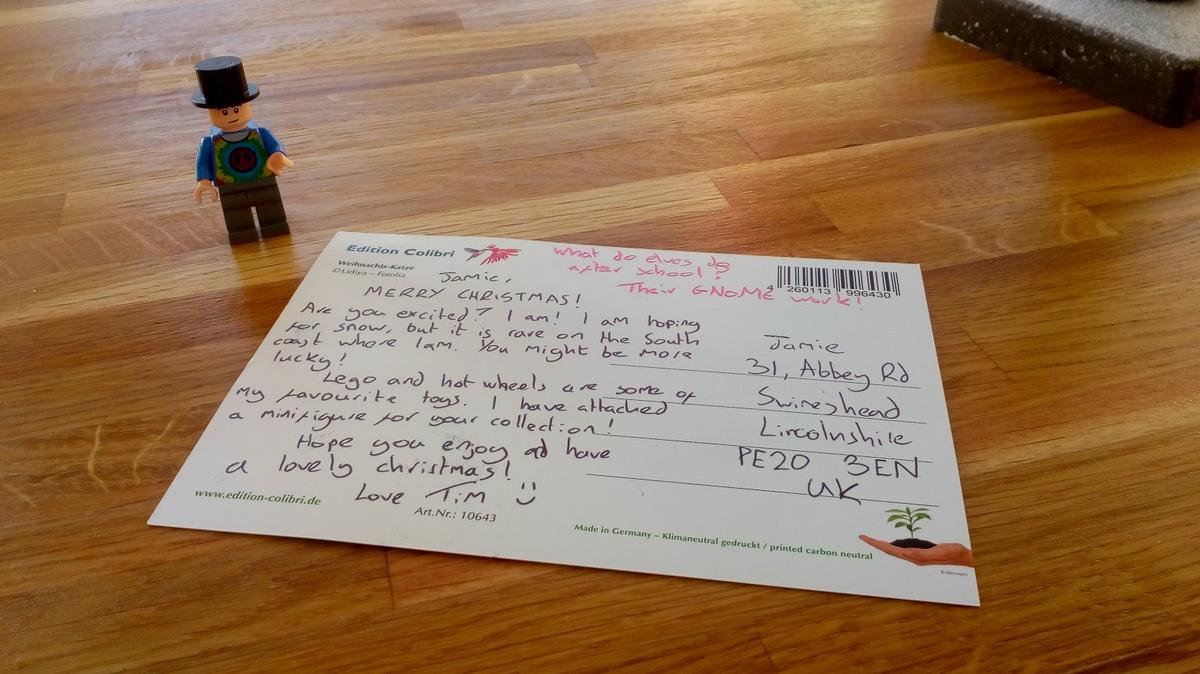 Edition Colibri
Weihnachts-Katze
©Lidiya – Fotolia
What do elves do
after school?
Their GNoME work!
4 260113 996430
Jamie,
MERRY CHRISTMAS!
Are you excited? I am! I am hoping
for snow, but it is rare on the South
coast where I am. You might be more
lucky!
Lego and hot wheels are some of
my favourite toys. I have attached
a minifigure for your collection!
Hope you enjoy and have
a lovely christmas!
Love Tim
Jamie
31, Abbey Rd
Swineshead
Lincolnshire
PE20 3EN
UK
www.edition-colibri.de
Art.Nr.: 10643
Made in Germany – Klimaneutral gedruckt / printed carbon neutral